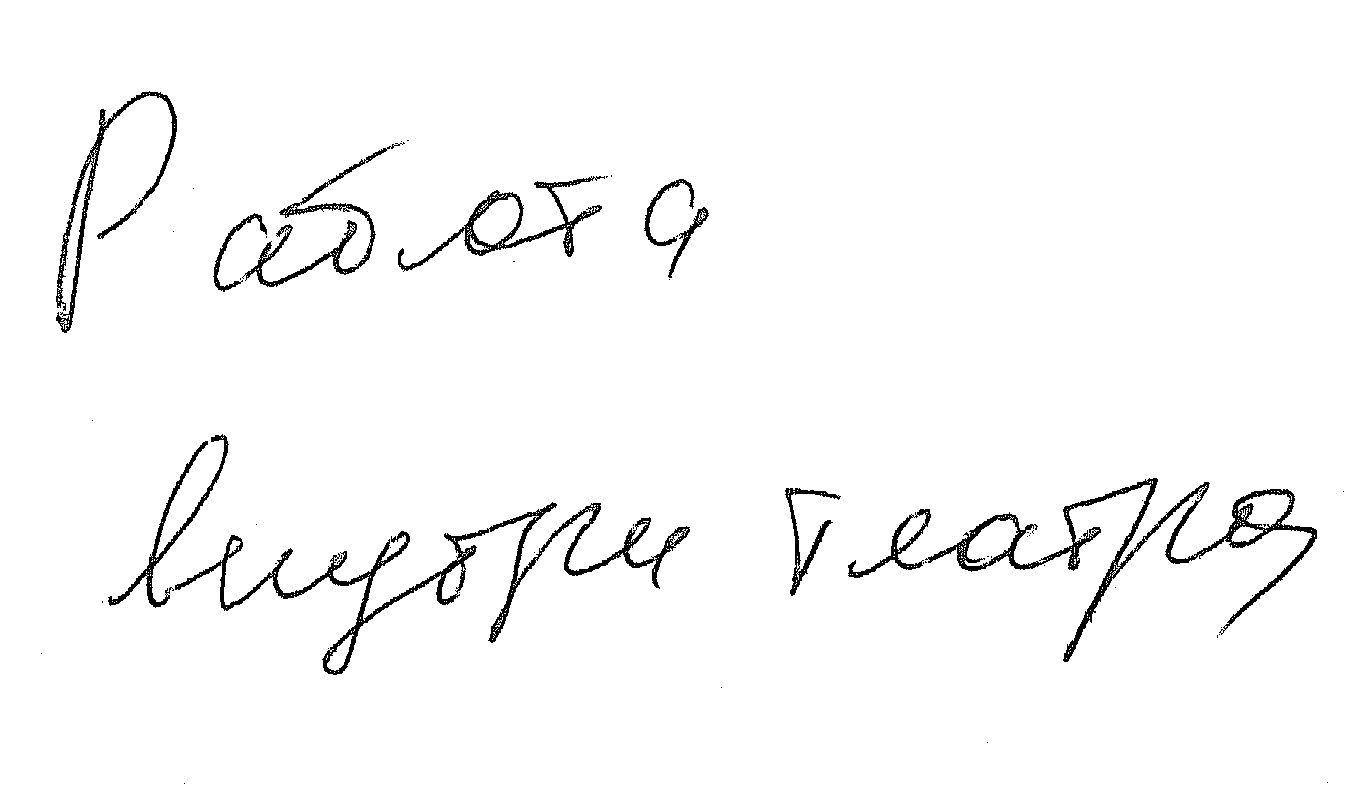 Работа
внутри театра